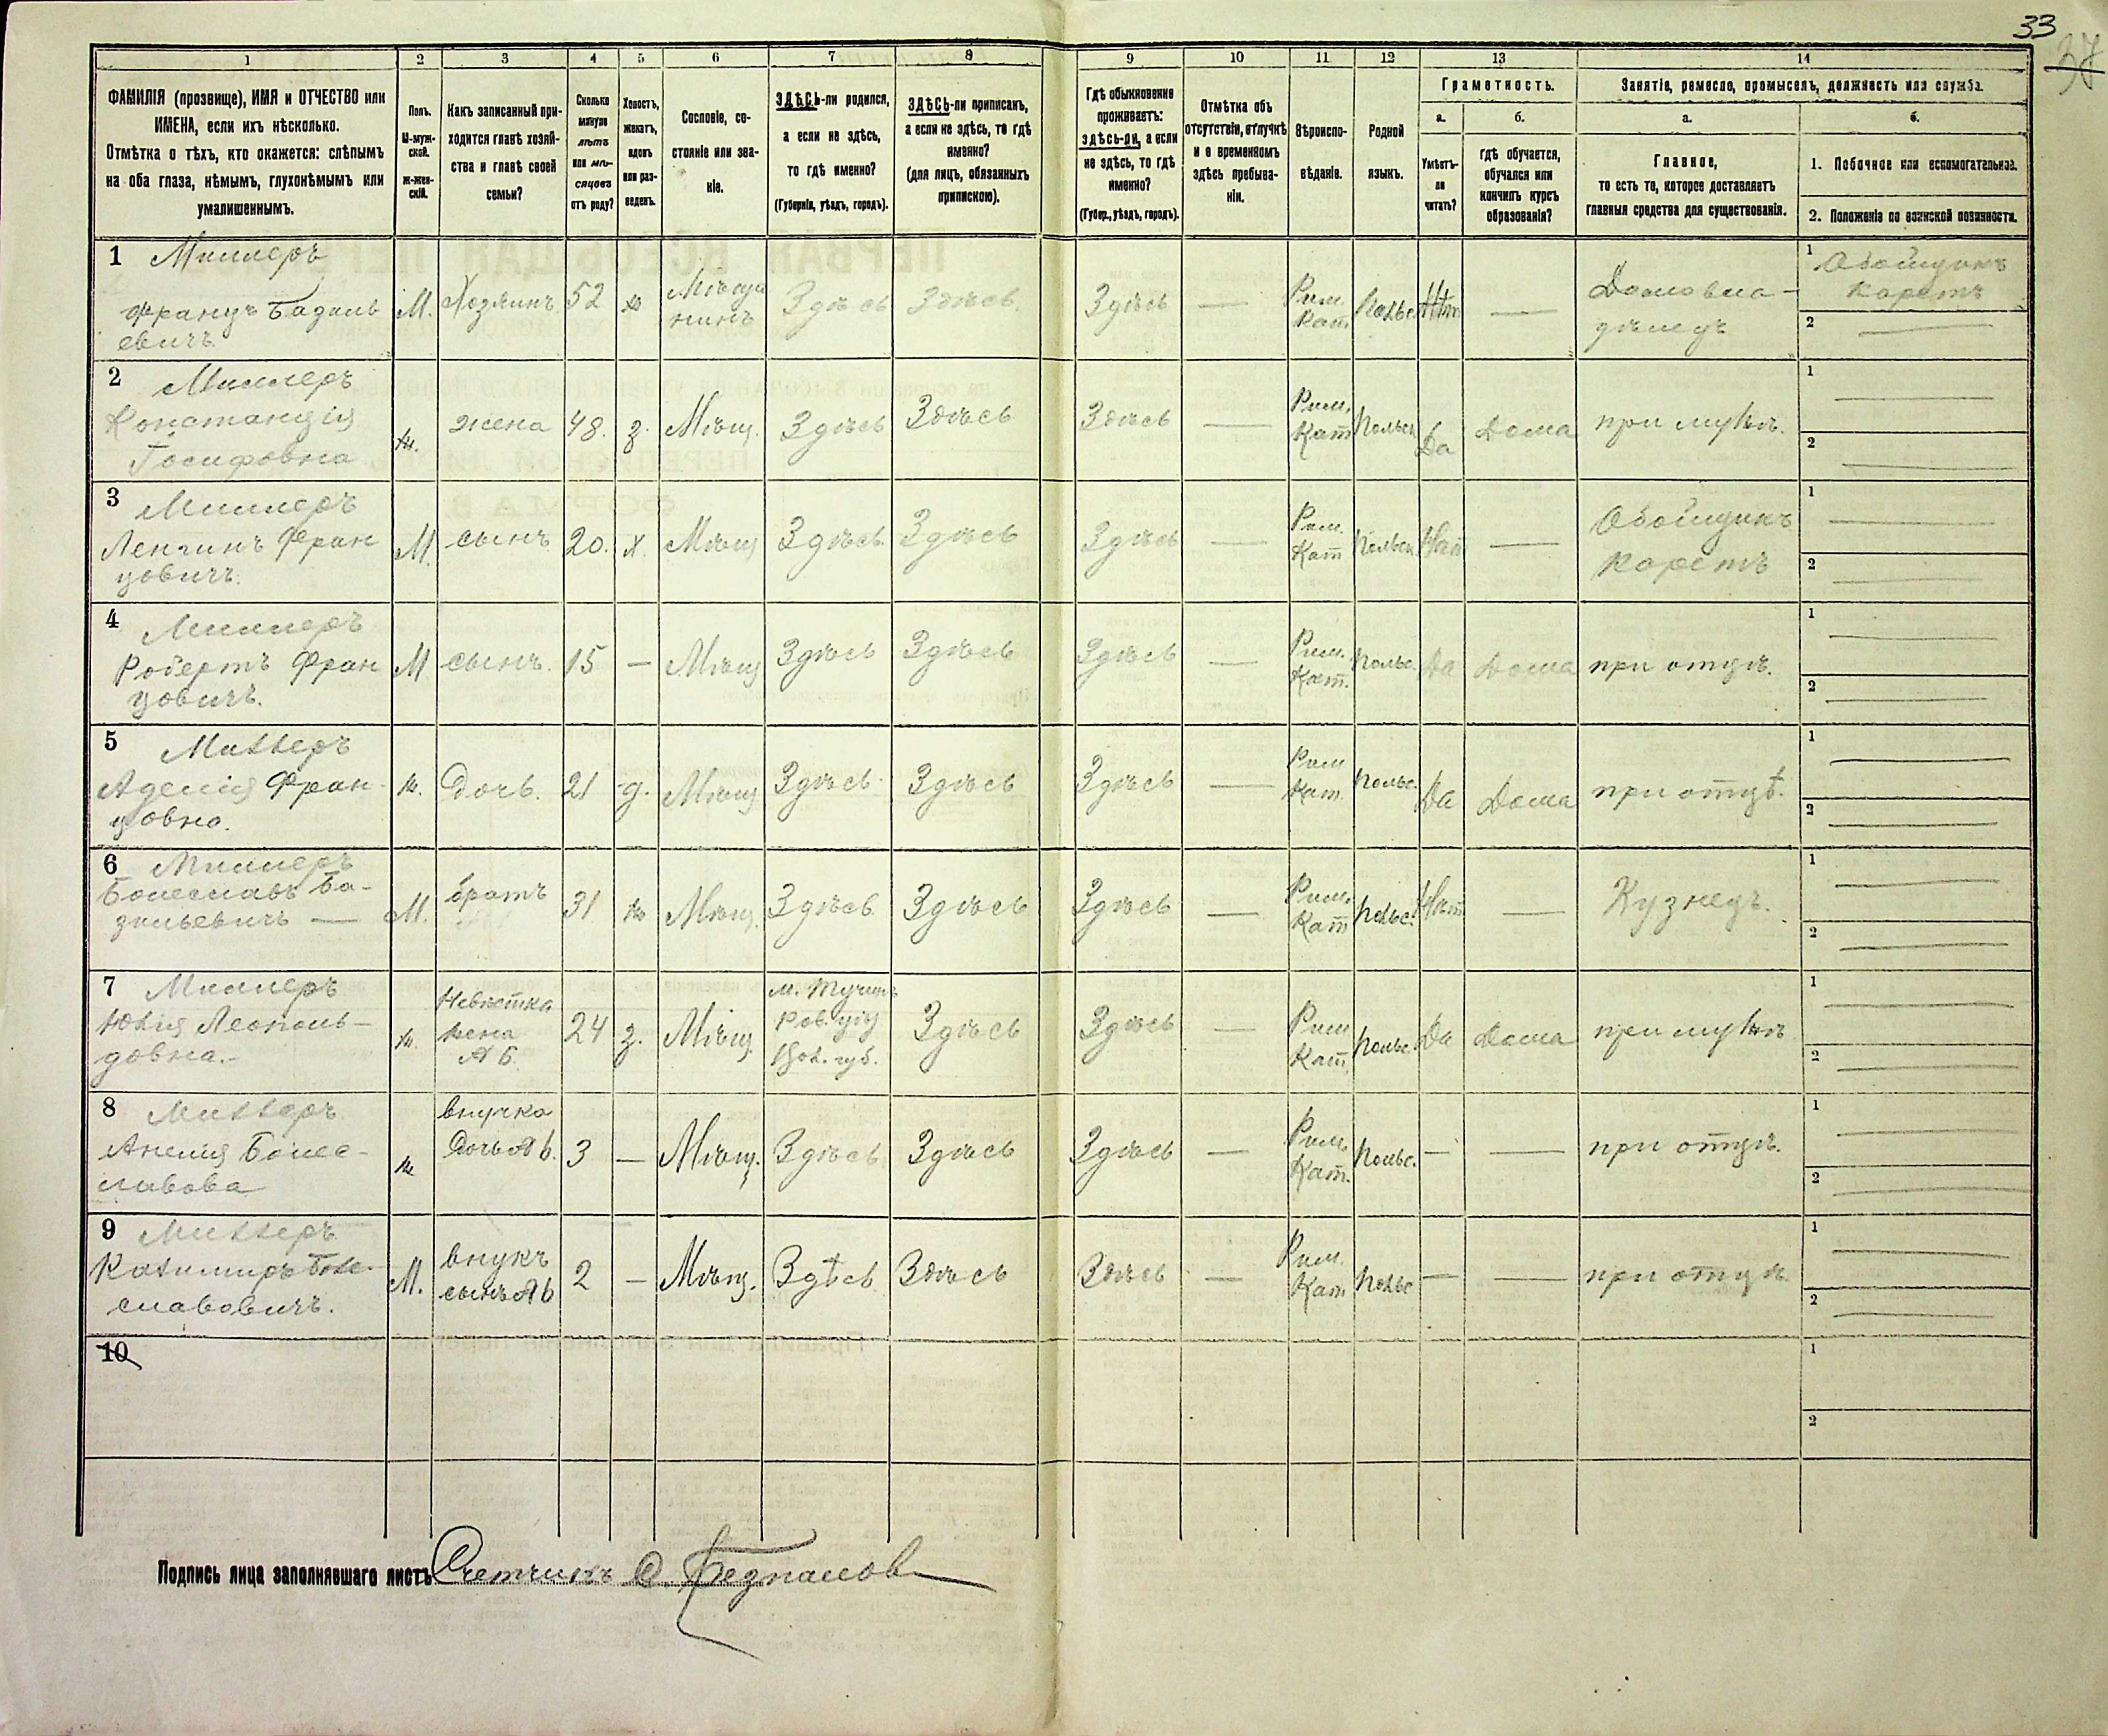 33
37
1 2 3 4 5 6 7 8 9 10 11 12 13 14
ФАМИЛІЯ (прозвище), ИМЯ и ОТЧЕСТВО или
ИМЕНА, если ихъ нѣсколько.
Отмѣтка о тѣхъ, кто окажется: слѣпымъ
на оба глаза, нѣмымъ, глухонѣмымъ или
умалишеннымъ.
Полъ.
М-муж-
ской.
Ж-жен-
скій.
Какъ записанный при-
ходится главѣ хозяй-
ства и главѣ своей
семьи?
Сколько
минуло
лѣтъ
или мѣ-
сяцевъ
отъ роду?
Холостъ,
женатъ,
вдовъ
или раз-
веденъ.
Сословіе, со-
стояніе или зва-
ніе.
ЗДѢСЬ-ли родился,
а если не здѣсь,
то гдѣ именно?
(Губернія, уѣздъ, городъ).
ЗДѢСЬ-ли приписанъ,
а если не здѣсь, то гдѣ
именно?
(для лицъ, обязанныхъ
припискою).
Гдѣ обыкновенно
проживаетъ:
здѣсь-ли, а если
не здѣсь, то гдѣ
именно?
(Губер., уѣздъ, городъ).
Отмѣтка объ
отсутствіи, отлучкѣ
и о временномъ
здѣсь пребыва-
ніи.
Вѣроиспо-
вѣданіе.
Родной
языкъ.
Грамотность.
а.
Умѣетъ-
ли
читать?
б.
гдѣ обучается,
обучался или
кончилъ курсъ
образованія?
Занятіе, ремесло, промыселъ, должность или служба.
а.
Главное,
то есть то, которое доставляетъ
главныя средства для существованія.
б.
1. Побочное или вспомогательное.
2. Положеніе по воинской повинности.
1 Миллеръ
Францъ Базиль
евичъ
М. Хозяинъ 52 ж Мѣща
нинъ
Здѣсь Здѣсь. Здѣсь —
Рим.
Кат
Польс. Нѣт —
Домовла-
дѣлецъ
1 Обойщикъ
каретъ
2 —
2 Миллеръ
Констанція
Іосифовна
ж. жена 48. з. Мѣщ. Здѣсь Здѣсь Здѣсь —
Рим.
Кат
Польск Да Дома при мужѣ.
1 —
2 —
3 Миллеръ
Фран
цовичъ.
М. сынъ 20. х. Мѣщ Здѣсь Здѣсь Здѣсь —
Рим.
Кат
Польск Нѣт —
Обойщикъ
каретъ
1 —
2 —
4 Миллеръ
Робертъ Фран
цовичъ.
М сынъ. 15 — Мѣщ Здѣсь Здѣсь Здѣсь —
Рим.
Кат.
Польс. Да Дома при отцѣ.
1 —
2 —
5 Миллеръ
Аделія Фран-
цовна.
ж. Дочь. 21 д. Мѣщ Здѣсь Здѣсь Здѣсь —
Рим
Кат.
Польс. Да Дома при отцѣ.
1 —
2 —
6 Миллеръ
Болеславъ Ба-
зильевичъ —
М. братъ 31 ж Мѣщ. Здѣсь Здѣсь Здѣсь —
Рим.
Кат
Польс. Нѣт — Кузнецъ.
1 —
2 —
7 Миллеръ
Юлія Леополь-
довна.-
ж.
Невѣстка
жена
№ 6.
24 з. Мѣщ.
Ров. уѣз
Вол. губ.
Здѣсь Здѣсь —
Рим
Кат.
Польс. Да Дома при мужѣ
1 —
2 —
8 Миллеръ
Анелия Болес-
лавова
ж
внучка
Дочь № 6.
3 — Мѣщ. Здѣсь Здѣсь Здѣсь —
Рим.
Кат.
Польс. — — при отцѣ.
1 —
2 —
9 Миллеръ
Казимиръ Боле-
славовичъ.
М.
внукъ
сынъ № 6
2 — Мѣщ. Здѣсь Здѣсь Здѣсь —
Рим.
Кат
Польс — — при отцѣ
1 —
2 —
10
1
2
Подпись лица заполнявшаго листъ Счетчикъ